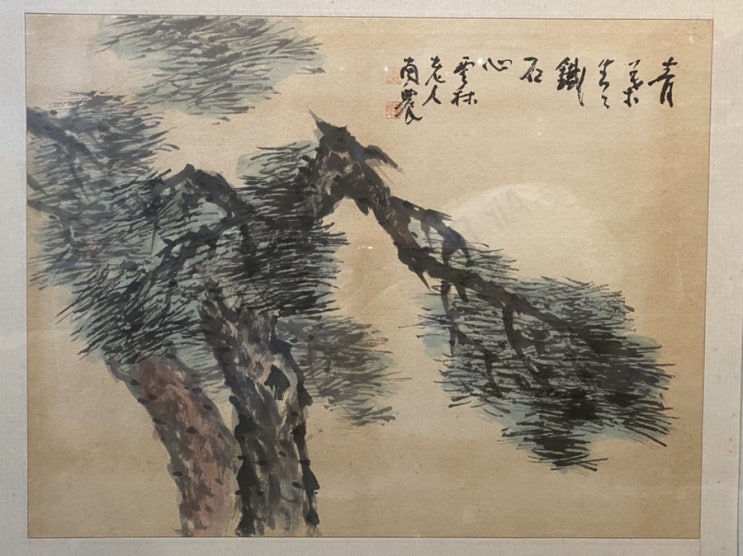 青
葉
生々
鐵
石
心
雲林
老人
農